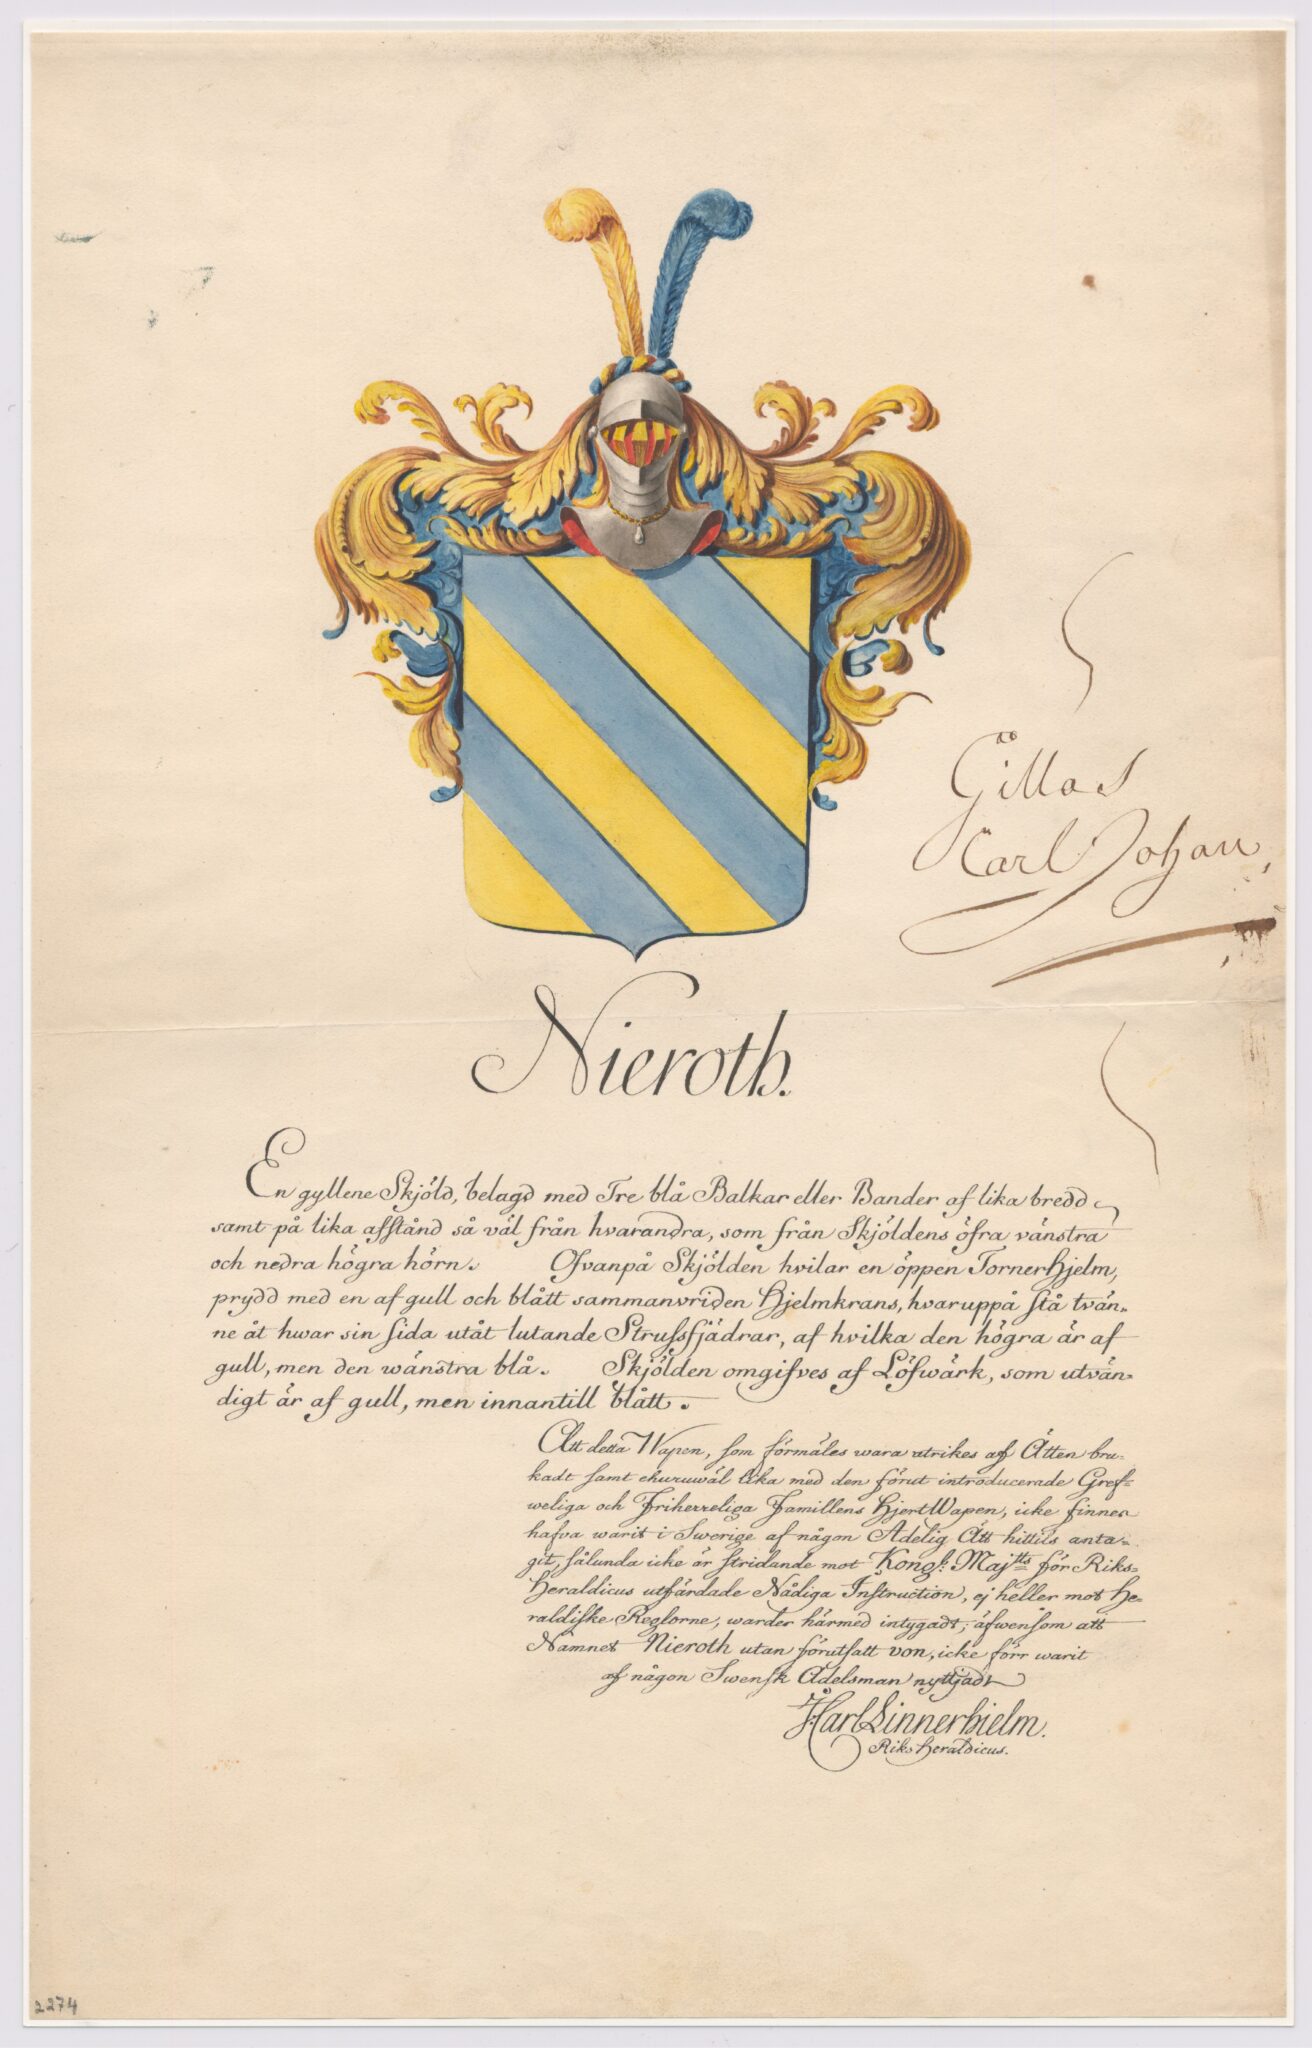 Gillas
Carl Johan
Nieroth.
En gyllene Skjöld, belagd med Tre blå Balkar eller Bander af lika bredd
samt på lika afstånd så väl från hvarandra, som från Skjöldens öfra vänstra
och nedra högra hörn. Ofvanpå Skjölden hvilar en öppen TornerHjelm,
prydd med en af gull och blått sammanvriden Hjelmkrans, hvaruppå stå tvän-
ne åt hwar sin sida utåt lutande Strussfjädrar, af hvilka den högra är af
gull, men den wänstra blå. Skjölden omgifves af Löfwärk, som utvän-
digt är af gull, men innantill blått.
Att detta Wapen, som förmäles wara utrikes af Ätten bru-
kadt samt ehuruwäl lika med den förut introducerade Gref-
weliga och Friherreliga Famillens HjertWapen, icke finnes
hafva warit i Swerige af någon Adelig Ätt hittils anta-
git, sålunda icke är stridande mot Kongl: Maj:tts för Riks-
Heraldicus utfärdade Nådiga Instruction, ej heller mot He-
raldiske Reglorne, warder härmed intygadt; äfwensom att
Namnet Nieroth utan förutsatt von, icke förr warit
af någon Swensk Adelsman nyttjadt
Karl Linnerhielm.
RiksHeraldicus.
2274